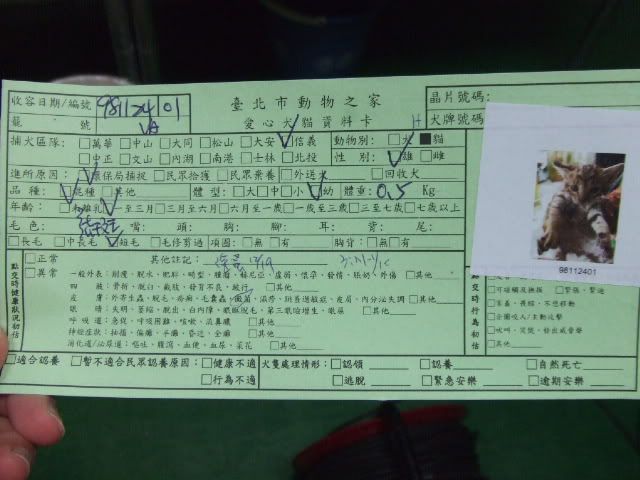 收容日期/編號 98112401 臺北市動物之家 晶片號碼:
籠 號 愛心犬貓資料卡 犬牌號碼
捕犬區隊: □萬華 □中山 □大同 □松山 □大安 □信義 動物別: □犬 ■貓
□中正 □文山 □內湖 □南港 □士林 □北投 性 別: □雄 □雌
進所原因: □環保局捕捉 □民眾拾獲 □民眾棄養 □外送火 □回收犬
品 種: □混種 □其他 體 型: □大□中□小□幼 體重: 0.5 Kg
年齡: □未離乳 □一至三月 □三月至六月 □六月至一歲 □一歲至三歲 □三至七歲 □七歲以上
毛 色: 嘴: 頭: 胸: 腳: 耳: 背: 尾:
□長毛 □中長毛 □短毛 □毛修剪過 項圈: □無 □有 胸背: □無 □有
點交時健康狀況初估
□正常 其他註記:
□異常 一般外表: 削瘦、脫水、肥胖、畸型、腫瘤、 虛弱、懷孕、發情、 外傷 □其他
四 肢: 骨折、脫臼、截肢、發育不良、跛行 □其他
皮 膚: 外寄生蟲、脫毛、疥癬、毛囊蟲、黴菌、濕疹、 過敏症、皮屑、內分泌失調 □其他
眼 睛: 失明、萎縮、脫出、白內障、眼瞼脫毛、第三眼瞼增生、眼屎 □其他
呼 吸 道: 急促、呼吸困難、咳嗽、流鼻膿 □其他
神經症狀: 抽搐、偏癱、半癱、昏迷、全癱 □其他
消化道/泌尿道: 嘔吐、腹瀉、血便、血尿、菜花 □其他
98112401
點交時行為初估
□可碰觸及撫摸 □緊張、緊迫
□害羞、畏縮、不想移動
□企圖咬人/主動攻擊
□吠叫、突慌、發出威脅聲
□其他
□適合認養 □暫不適合民眾認養原因: □健康不適 犬隻處理情形: □認領 □認養 □自然死亡
□行為不適 □逃脫 □緊急安樂 □逾期安樂